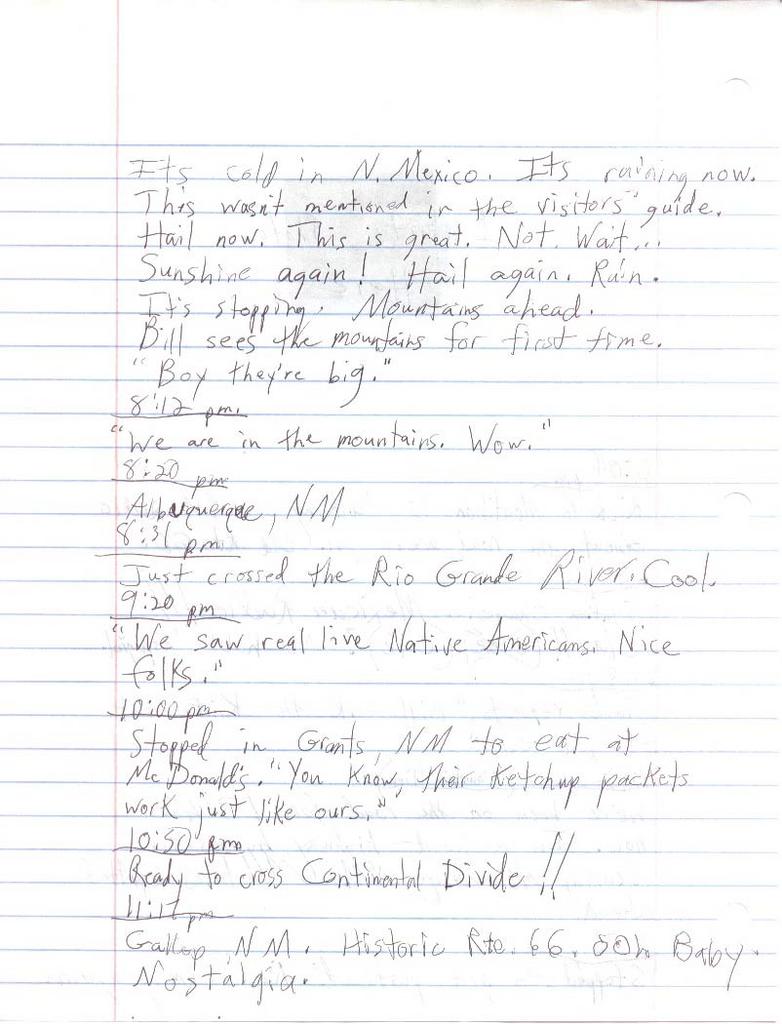 Its cold in N. Mexico. Its raining now.
This wasn't mentioned in the visitors' guide.
Hail now. This is great. Not. Wait...
Sunshine again! Hail again. Rain.
It's stopping. Mountains ahead.
Bill sees the mountains for first time.
"Boy they're big."
8:12 pm.
"We are in the mountains. Wow."
8:20 pm
Albuquerque, NM
8:31 pm
Just crossed the Rio Grande River. Cool.
9:20 pm
"We saw real live Native Americans. Nice
folks."
10:00 pm
Stopped in Grants, NM to eat at
McDonald's. "You know, their ketchup packets
work just like ours."
10:50 pm
Ready to cross Continental Divide!!
11:17 pm
Gallop, NM. Historic Rte. 66. Ooh Baby.
Nostalgia.